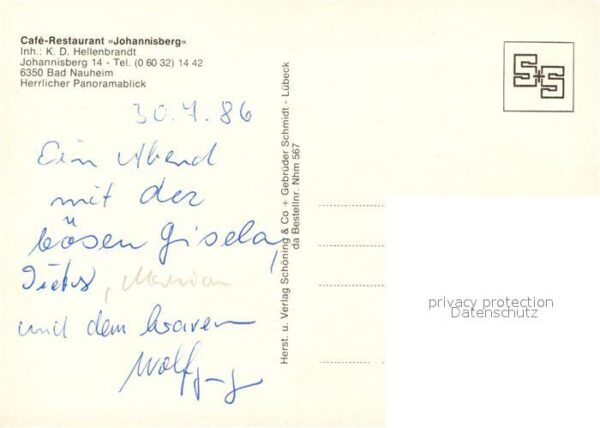 Café-Restaurant »Johannisberg«
Inh.: K. D. Hellenbrandt
Johannisberg 14 - Tel. (0 60 32) 14 42
6350 Bad Nauheim
Herrlicher Panoramablick
30.7.86
Ein Abend
mit der
bösen Gisela,
Marion
und dem braven
Wolfgang
Herst. u. Verlag Schöning & Co + Gebrüder Schmidt - Lübeck
da Bestellnr. Nhm 567
S+S
privacy protection
Datenschutz